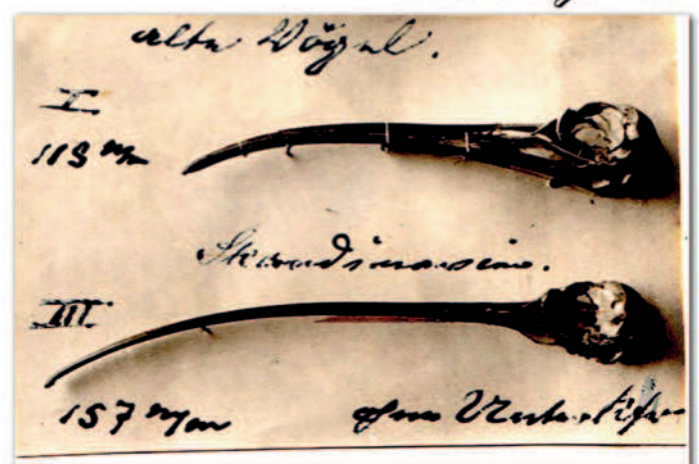 alte Vögel.
I
113 mm
Skandinavien.
III
157 mm
ohne Unterkiefer